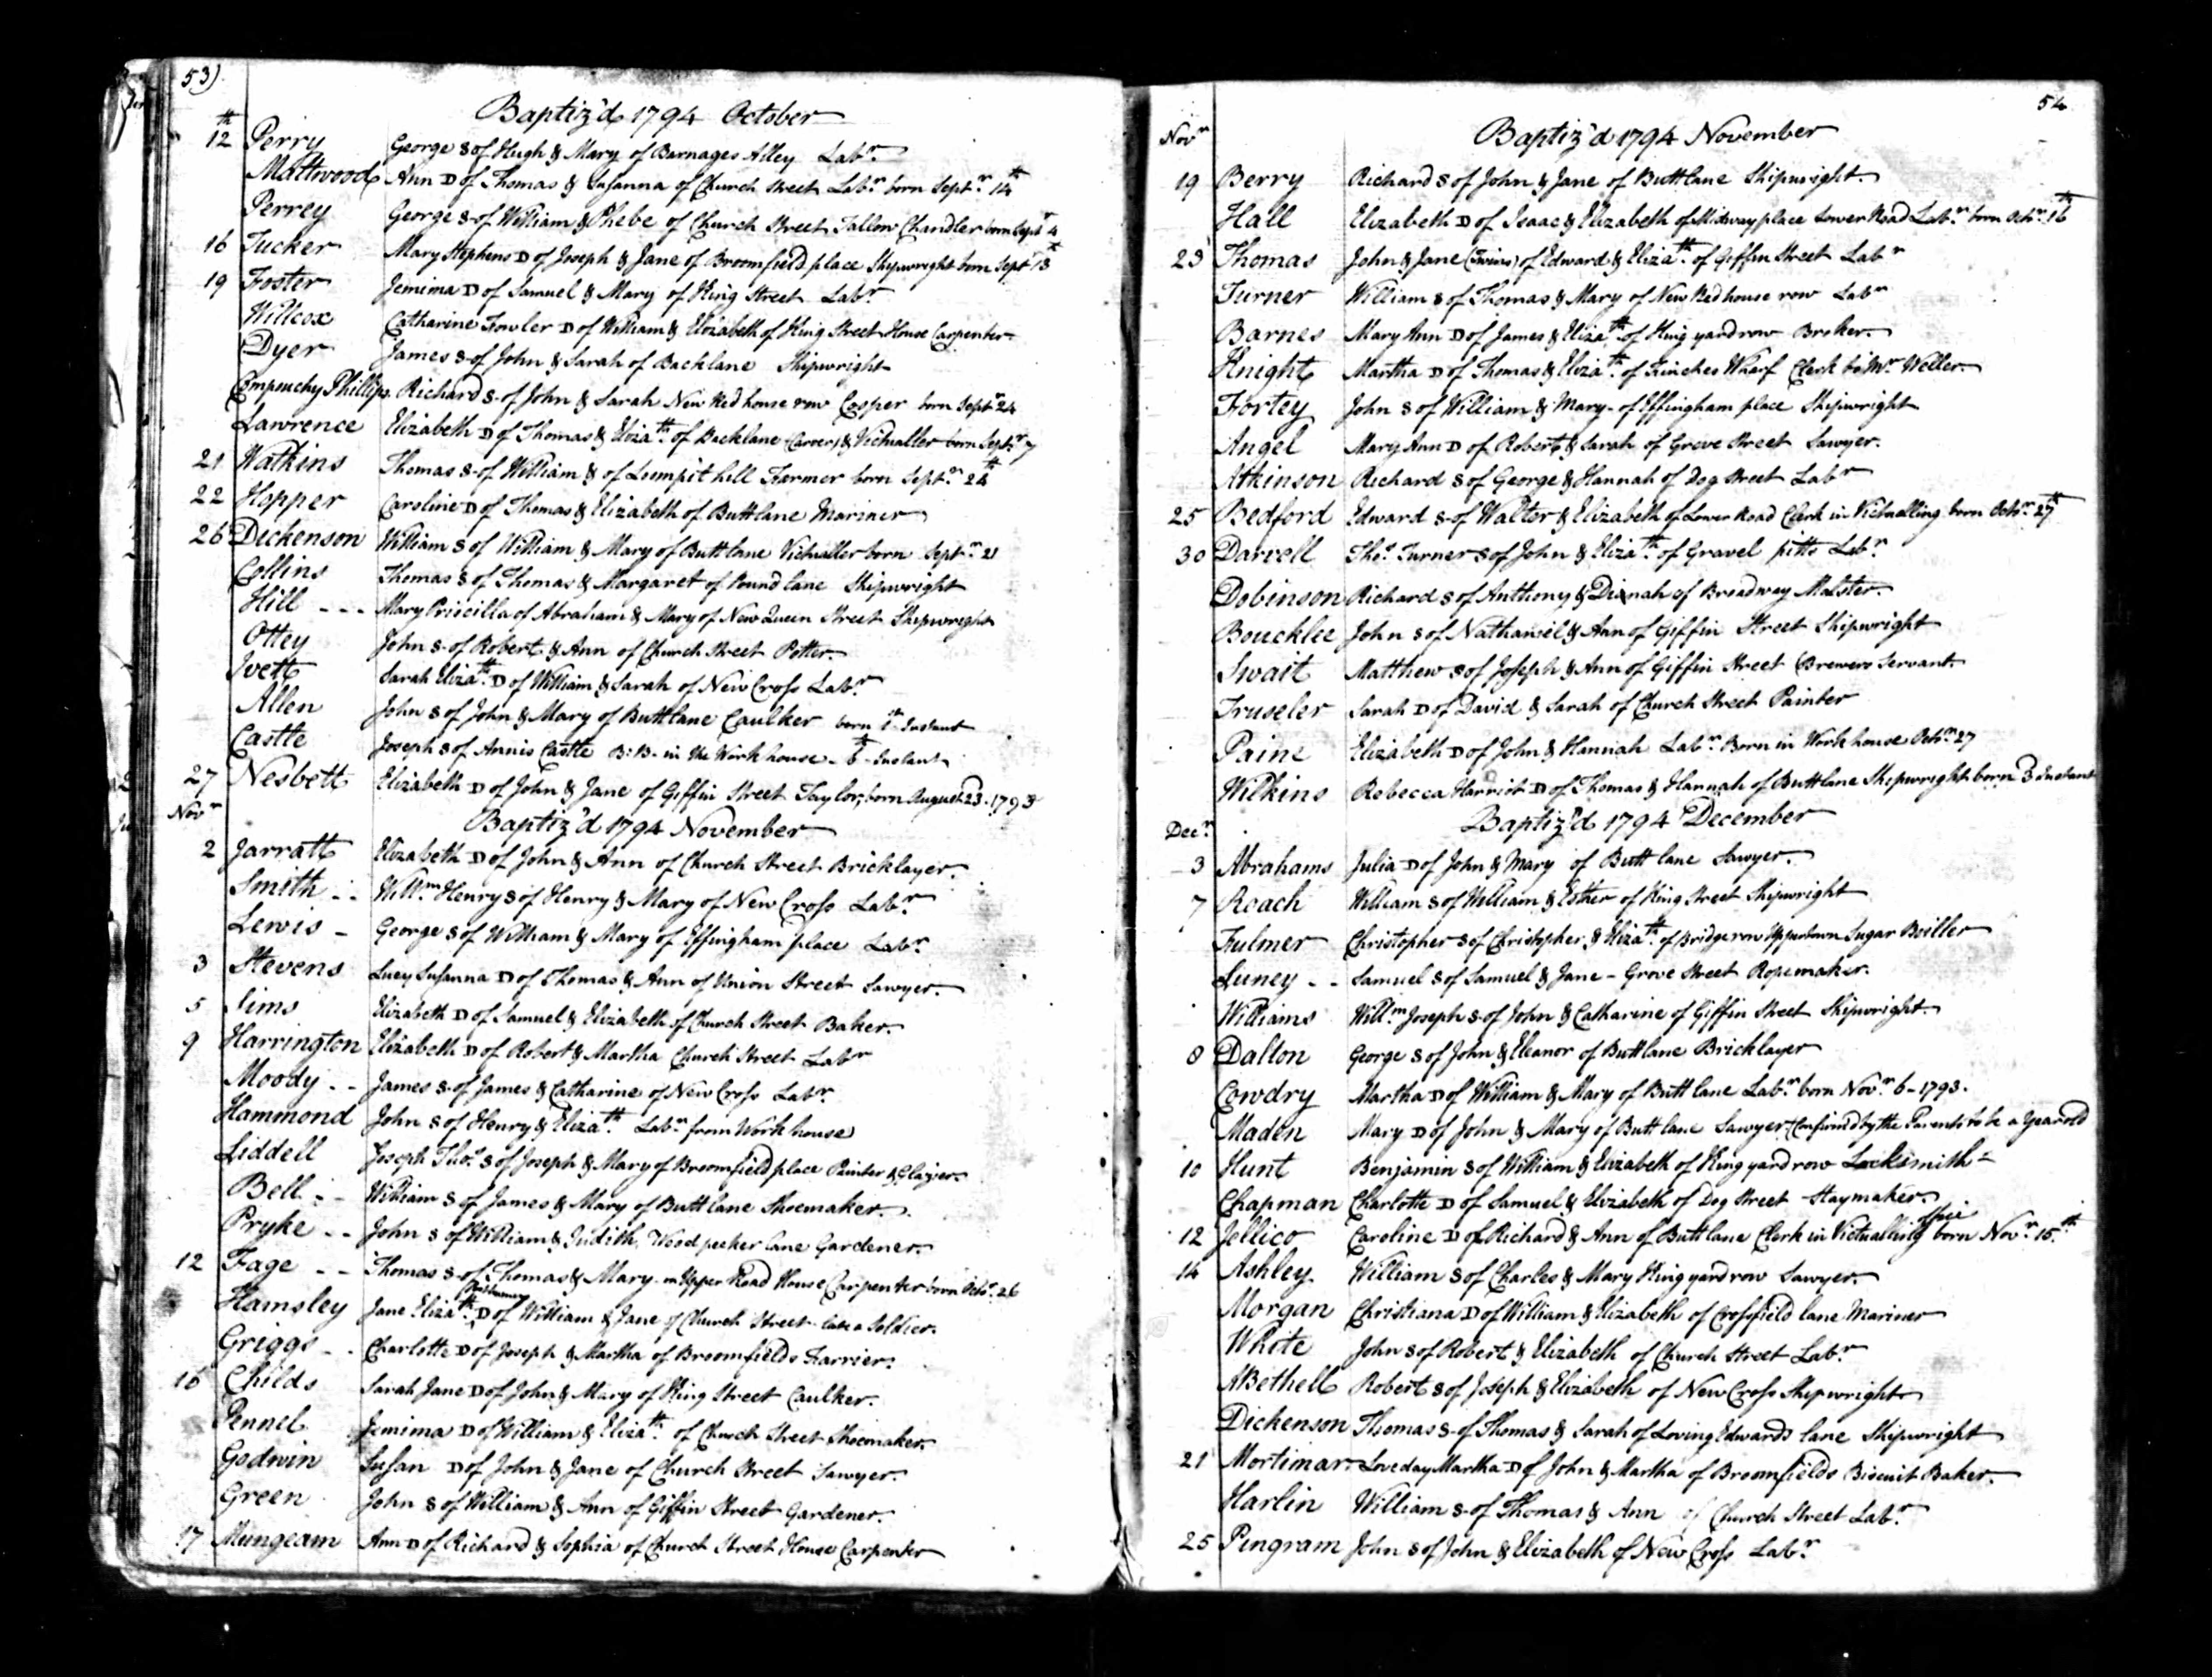 53)
Baptiz'd 1794 October
12th Perry George S of Hugh & Mary of Barnages Alley Labr.
Mattwood Ann D of Thomas & Susanna of Church Street Labr. born Septr. 14th
Perrey George S of William & Phebe of Church Street Tallow Chandler born Septr 4
16 Tucker Mary Stephens D of Joseph & Jane of Broomfield place Shipwright born Septr 13th
19 Foster Jemima D of Samuel & Mary of King Street Labr.
Willcox Catharine Fowler D of William & Elizabeth of King Street House Carpenter
Dyer James S of John & Sarah of Backlane Shipwright
Compuchy Phillips Richard S of John & Sarah New Red house row Cooper born Septr 24
Lawrence Elizabeth D of Thomas & Elizath. of Backlane (Carver) & Victualler born Septr. 7
21 Watkins Thomas S of William & of Lumpit hill Farmer born Septr. 24th
22 Hopper Caroline D of Thomas & Elizabeth of Buttlane Mariner
26 Dickenson William S of William & Mary of Buttlane Victualler born Septr. 21
Collins Thomas S of Thomas & Margaret of Pound lane Shipwright
Hill - - - Mary Priscilla of Abraham & Mary of New Queen Street Shipwright
Ottey John S of Robert & Ann of Church Street Potter.
Ivett Sarah Elizath. D of William & Sarah of New Cross Labr.
Allen John S of John & Mary of Buttlane Caulker born 1st Instant
Castle Joseph S of Annis Castle B:B- in the Workhouse - 6th Instant
27 Nesbett Elizabeth D of John & Jane of Giffin Street Taylor, born August 23. 1793
Novr
Baptiz'd 1794 November
2 Jarratt Elizabeth D of John & Ann of Church Street Bricklayer.
Smith - - Willm. Henry S of Henry & Mary of New Cross Labr.
Lewis - George S of William & Mary of Effingham place Labr.
3 Stevens Lucy Susanna D of Thomas & Ann of Union Street Sawyer.
5 Sims Elizabeth D of Samuel & Elizabeth of Church Street Baker.
9 Harrington Elizabeth D of Robert & Martha Church Street Labr
Moody - - James S of James & Catharine of New Cross Labr.
Hammond John S of Henry & Elizath. Labr. from Workhouse
Liddell Joseph Thos. S of Joseph & Mary of Broomfield place Painter & Glazier.
Bell - - William S of James & Mary of Buttlane Shoemaker.
Pryke - - John S of William & Judith, Woodpecker lane Gardener.
12 Fage - - Thomas S of Thomas & Mary - in Upper Road House Carpenter born Octr. 26
Hamsley Jane Elizath. D of William & Jane of Church Street late a Soldier.
Griggs - - Charlotte D of Joseph & Martha of Broomfields Farrier.
16 Childs Sarah Jane D of John & Mary of King Street Caulker.
Pennel Jemima D of William & Elizath. of Church Street Shoemaker
Godwin Susan D of John & Jane of Church Street Sawyer.
Green John S of William & Ann of Giffin Street Gardener.
17 Mungeam Ann D of Richard & Sophia of Church Street House Carpenter
54
Novr
Baptiz'd 1794 November
19 Berry Richard S of John & Jane of Buttlane Shipwright.
Hall Elizabeth D of Isaac & Elizabeth of Midwayplace Lower Road Labr. born Octr. 16th
23 Thomas John & Jane (Twins) of Edward & Elizath. of Giffin Street Labr
Turner William S of Thomas & Mary of New Redhouse row Labr
Barnes Mary Ann D of James & Elizath of King yard row Broker.
Knight Martha D of Thomas & Elizath. of Finches Wharf Clerk to Mr. Weller.
Fortey John S of William & Mary of Effingham place Shipwright
Angel Mary Ann D of Robert & Sarah of Grove Street Sawyer.
Atkinson Richard S of George & Hannah of Dog Street Labr
25 Bedford Edward S of Walter & Elizabeth of Lower Road Clerk in Victualling born Octr. 27th
30 Darvell Thos. Turner S of John & Elizath. of Gravel pitts Labr.
Dobinson Richard S of Anthony & Dinah of Broadway Malster.
Boucklee John S of Nathaniel & Ann of Giffin Street Shipwright
Swait Matthew S of Joseph & Ann of Giffin Street (Brewers Servant.
Truseler Sarah D of David & Sarah of Church Street Painter
Paine Elizabeth D of John & Hannah Labr. Born in Workhouse Octr. 27
Wilkins Rebecca Harriot D of Thomas & Hannah of Buttlane Shipwright born 3 Instant
Decr.
Baptiz'd 1794 December
3 Abrahams Julia D of John & Mary of Butt lane Sawyer.
7 Roach William S of William & Esther of King Street Shipwright
Fulmer Christopher S of Christopher & Elizath. of Bridge row Uppertown Sugar Boiller
Luney - - Samuel S of Samuel & Jane - Grove Street Ropemaker.
Williams Willm. Joseph S of John & Catharine of Giffin Street Shipwright.
8 Dalton George S of John & Eleanor of Buttlane Bricklayer
Cowdry Martha D of William & Mary of Butt lane Labr. born Novr. 6 - 1793.
Maden Mary D of John & Mary of Butt lane Sawyer, Confirm'd by the Parents to be a Year old
10 Hunt Benjamin S of William & Elizabeth of King yard row Locksmith -
Chapman Charlotte D of Samuel & Elizabeth of Dog Street Staymaker.
12 Jellico Caroline D of Richard & Ann of Buttlane Clerk in Victualling office born Novr. 15th
14 Ashley William S of Charles & Mary King yard row Sawyer.
Morgan Christiana D of William & Elizabeth of Crossfield lane Mariner
White John S of Robert & Elizabeth of Church Street Labr.
ABethell Robert S of Joseph & Elizabeth of New Cross Shipwright
Dickenson Thomas S of Thomas & Sarah of Loving Edwards lane Shipwright
21 Mortimar Loveday Martha D of John & Martha of Broomfields Biscuit Baker.
Harlin William S of Thomas & Ann of Church Street Labr.
25 Pingram John S of John & Elizabeth of New Cross Labr.